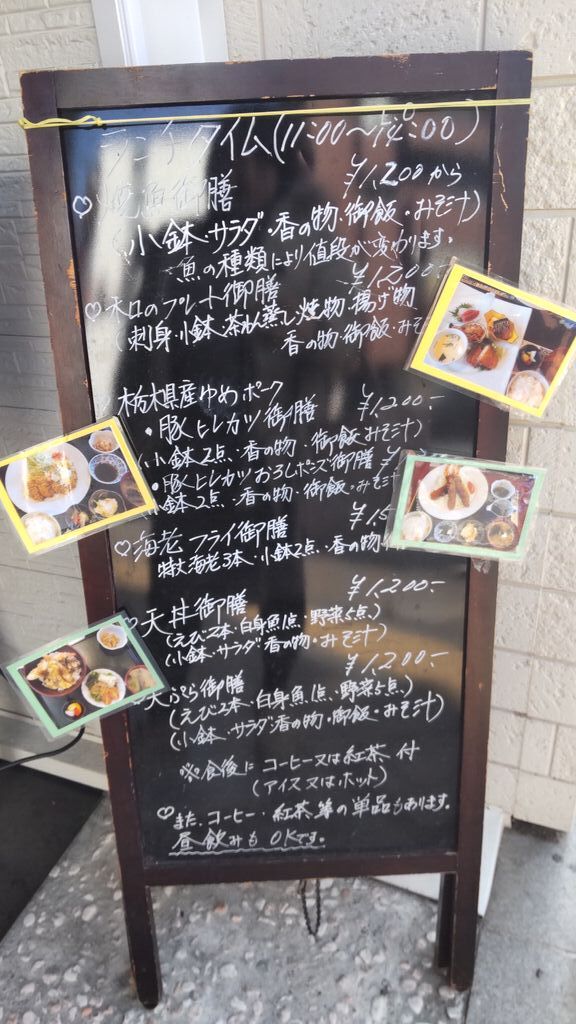 ランチタイム(11:00〜14:00)
♡焼魚御膳 ¥1,200から
(小鉢・サラダ・香の物・御飯・みそ汁)
魚の種類により値段が変わります。
♡本日のプレート御膳 ¥1,200-
(刺身・小鉢・茶わん蒸し・焼物・揚げ物
香の物・御飯・みそ
♡栃木県産ゆめポーク
・豚ヒレカツ御膳 ¥1,200-
(小鉢2点・香の物・御飯・みそ汁)
・豚ヒレカツおろしポンズ御膳
小鉢2点・香の物・御飯・みそ
♡海老フライ御膳 ¥1,5
特大海老3本・小鉢2点・香の物
♡天丼御膳 ¥1,200-
(えび2本・白身魚1点・野菜5点)
(小鉢・サラダ・香の物・みそ汁)
天ぷら御膳 ¥1,200-
(えび2本・白身魚1点・野菜5点)
(小鉢・サラダ・香の物・御飯・みそ汁)
※食後にコーヒー又は紅茶付
(アイス又はホット)
♡また、コーヒー・紅茶等の単品もあります。
昼飲みもOKです。